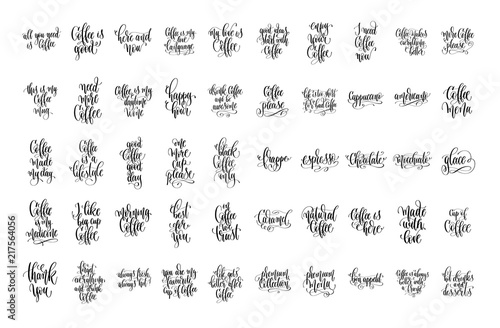 all you need is Coffee
Coffee is always good
here and now
Coffee is my love language
my love is Coffee
good ideas start with Coffee
enjoy your Coffee
I need Coffee now
Coffee makes everything better
more Coffee please
this is my Coffee mug
need more Coffee
Coffee is my daytime wine
happy hour
drink Coffee and be awesome
Coffee please
life is too short for bad Coffee
Cappuccino
americano
Coffee Menu
Coffee made my day
Coffee is a lifestyle
good Coffee good day
one more cup please
black Coffee only
frappe
espresso
Chocolate
mochiato
glace
Coffee is my medicine
I like big cup Coffee
morning Coffee
best for you
in Coffee we trust
Caramel
natural Coffee
Coffee is here
made with love
cup of Coffee
thank you
and drink Coffee
always fresh always hot
you are my favourite cup of Coffee
life gets better after Coffee
premium Collection
premium Menu
bon appetit
Coffee always better with friends
hot drinks and desserts
Adobe Stock | #217564056